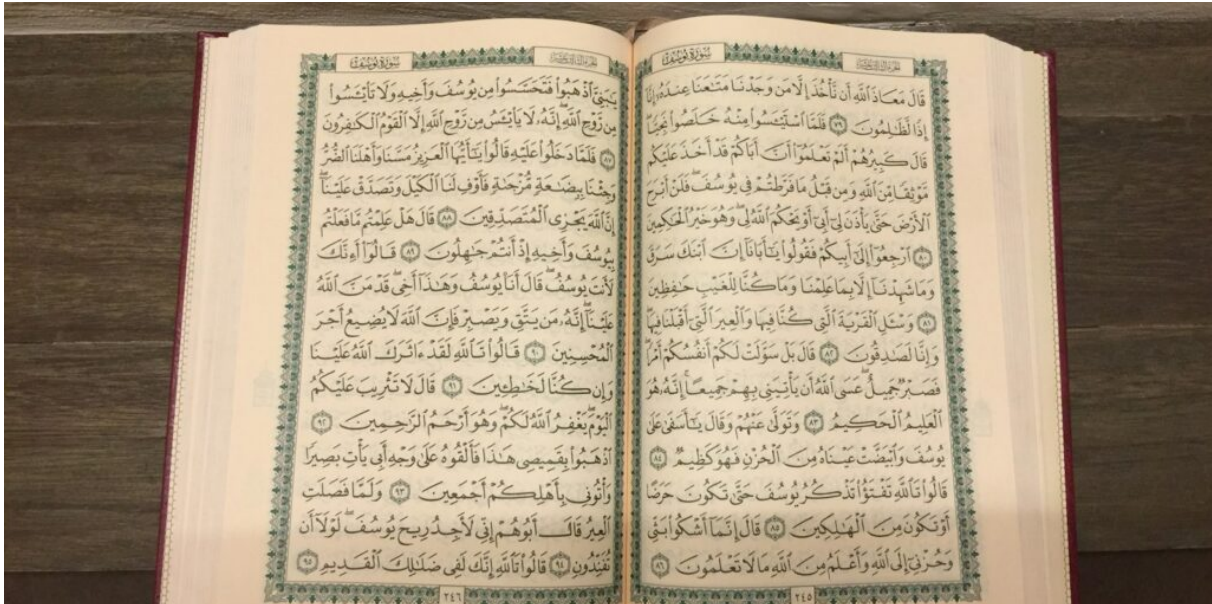 سورة يوسف
الجزء الثالث عشر
قَالَ مَعَاذَ ٱللَّهِ أَن نَّأۡخُذَ إِلَّا مَن وَجَدۡنَا مَتَٰعَنَا عِندَهُۥٓ إِنَّآ
إِذٗا لَّظَٰلِمُونَ ٧٩ فَلَمَّا ٱسۡتَيۡـَٔسُواْ مِنۡهُ خَلَصُواْ نَجِيّٗاۖ
قَالَ كَبِيرُهُمۡ أَلَمۡ تَعۡلَمُوٓاْ أَنَّ أَبَاكُمۡ قَدۡ أَخَذَ عَلَيۡكُم
مَّوۡثِقٗا مِّنَ ٱللَّهِ وَمِن قَبۡلُ مَا فَرَّطتُمۡ فِي يُوسُفَۖ فَلَنۡ أَبۡرَحَ
ٱلۡأَرۡضَ حَتَّىٰ يَأۡذَنَ لِيٓ أَبِيٓ أَوۡ يَحۡكُمَ ٱللَّهُ لِيۖ وَهُوَ خَيۡرُ ٱلۡحَٰكِمِينَ
٨٠ ٱرۡجِعُوٓاْ إِلَىٰٓ أَبِيكُمۡ فَقُولُواْ يَٰٓأَبَانَآ إِنَّ ٱبۡنَكَ سَرَقَ
وَمَا شَهِدۡنَآ إِلَّا بِمَا عَلِمۡنَا وَمَا كُنَّا لِلۡغَيۡبِ حَٰفِظِينَ
٨١ وَسۡـَٔلِ ٱلۡقَرۡيَةَ ٱلَّتِي كُنَّا فِيهَا وَٱلۡعِيرَ ٱلَّتِيٓ أَقۡبَلۡنَا فِيهَاۖ
وَإِنَّا لَصَٰدِقُونَ ٨٢ قَالَ بَلۡ سَوَّلَتۡ لَكُمۡ أَنفُسُكُمۡ أَمۡرٗاۖ
فَصَبۡرٞ جَمِيلٌۖ عَسَى ٱللَّهُ أَن يَأۡتِيَنِي بِهِمۡ جَمِيعًاۚ إِنَّهُۥ هُوَ
ٱلۡعَلِيمُ ٱلۡحَكِيمُ ٨٣ وَتَوَلَّىٰ عَنۡهُمۡ وَقَالَ يَٰٓأَسَفَىٰ عَلَىٰ
يُوسُفَ وَٱبۡيَضَّتۡ عَيۡنَاهُ مِنَ ٱلۡحُزۡنِ فَهُوَ كَظِيمٞ ٨٤
قَالُواْ تَٱللَّهِ تَفۡتَؤُاْ تَذۡكُرُ يُوسُفَ حَتَّىٰ تَكُونَ حَرَضًا
أَوۡ تَكُونَ مِنَ ٱلۡهَٰلِكِينَ ٨٥ قَالَ إِنَّمَآ أَشۡكُواْ بَثِّي
وَحُزۡنِيٓ إِلَى ٱللَّهِ وَأَعۡلَمُ مِنَ ٱللَّهِ مَا لَا تَعۡلَمُونَ ٨٦
٢٤٥
الجزء الثالث عشر
سورة يوسف
يَٰبَنِيَّ ٱذۡهَبُواْ فَتَحَسَّسُواْ مِن يُوسُفَ وَأَخِيهِ وَلَا تَاْيۡـَٔسُواْ
مِن رَّوۡحِ ٱللَّهِۖ إِنَّهُۥ لَا يَاْيۡـَٔسُ مِن رَّوۡحِ ٱللَّهِ إِلَّا ٱلۡقَوۡمُ ٱلۡكَٰفِرُونَ
٨٧ فَلَمَّا دَخَلُواْ عَلَيۡهِ قَالُواْ يَٰٓأَيُّهَا ٱلۡعَزِيزُ مَسَّنَا وَأَهۡلَنَا ٱلضُّرُّ
وَجِئۡنَا بِبِضَٰعَةٖ مُّزۡجَىٰةٖ فَأَوۡفِ لَنَا ٱلۡكَيۡلَ وَتَصَدَّقۡ عَلَيۡنَآۖ
إِنَّ ٱللَّهَ يَجۡزِي ٱلۡمُتَصَدِّقِينَ ٨٨ قَالَ هَلۡ عَلِمۡتُم مَّا فَعَلۡتُم
بِيُوسُفَ وَأَخِيهِ إِذۡ أَنتُمۡ جَٰهِلُونَ ٨٩ قَالُوٓاْ أَءِنَّكَ
لَأَنتَ يُوسُفُۖ قَالَ أَنَا۠ يُوسُفُ وَهَٰذَآ أَخِيۖ قَدۡ مَنَّ ٱللَّهُ
عَلَيۡنَآۖ إِنَّهُۥ مَن يَتَّقِ وَيَصۡبِرۡ فَإِنَّ ٱللَّهَ لَا يُضِيعُ أَجۡرَ
ٱلۡمُحۡسِنِينَ ٩٠ قَالُواْ تَٱللَّهِ لَقَدۡ ءَاثَرَكَ ٱللَّهُ عَلَيۡنَا
وَإِن كُنَّا لَخَٰطِـِٔينَ ٩١ قَالَ لَا تَثۡرِيبَ عَلَيۡكُمُ
ٱلۡيَوۡمَۖ يَغۡفِرُ ٱللَّهُ لَكُمۡۖ وَهُوَ أَرۡحَمُ ٱلرَّٰحِمِينَ ٩٢
ٱذۡهَبُواْ بِقَمِيصِي هَٰذَا فَأَلۡقُوهُ عَلَىٰ وَجۡهِ أَبِي يَأۡتِ بَصِيرٗا
وَأۡتُونِي بِأَهۡلِكُمۡ أَجۡمَعِينَ ٩٣ وَلَمَّا فَصَلَتِ
ٱلۡعِيرُ قَالَ أَبُوهُمۡ إِنِّي لَأَجِدُ رِيحَ يُوسُفَۖ لَوۡلَآ أَن
تُفَنِّدُونِ ٩٤ قَالُواْ تَٱللَّهِ إِنَّكَ لَفِي ضَلَٰلِكَ ٱلۡقَدِيمِ ٩٥
٢٤٦